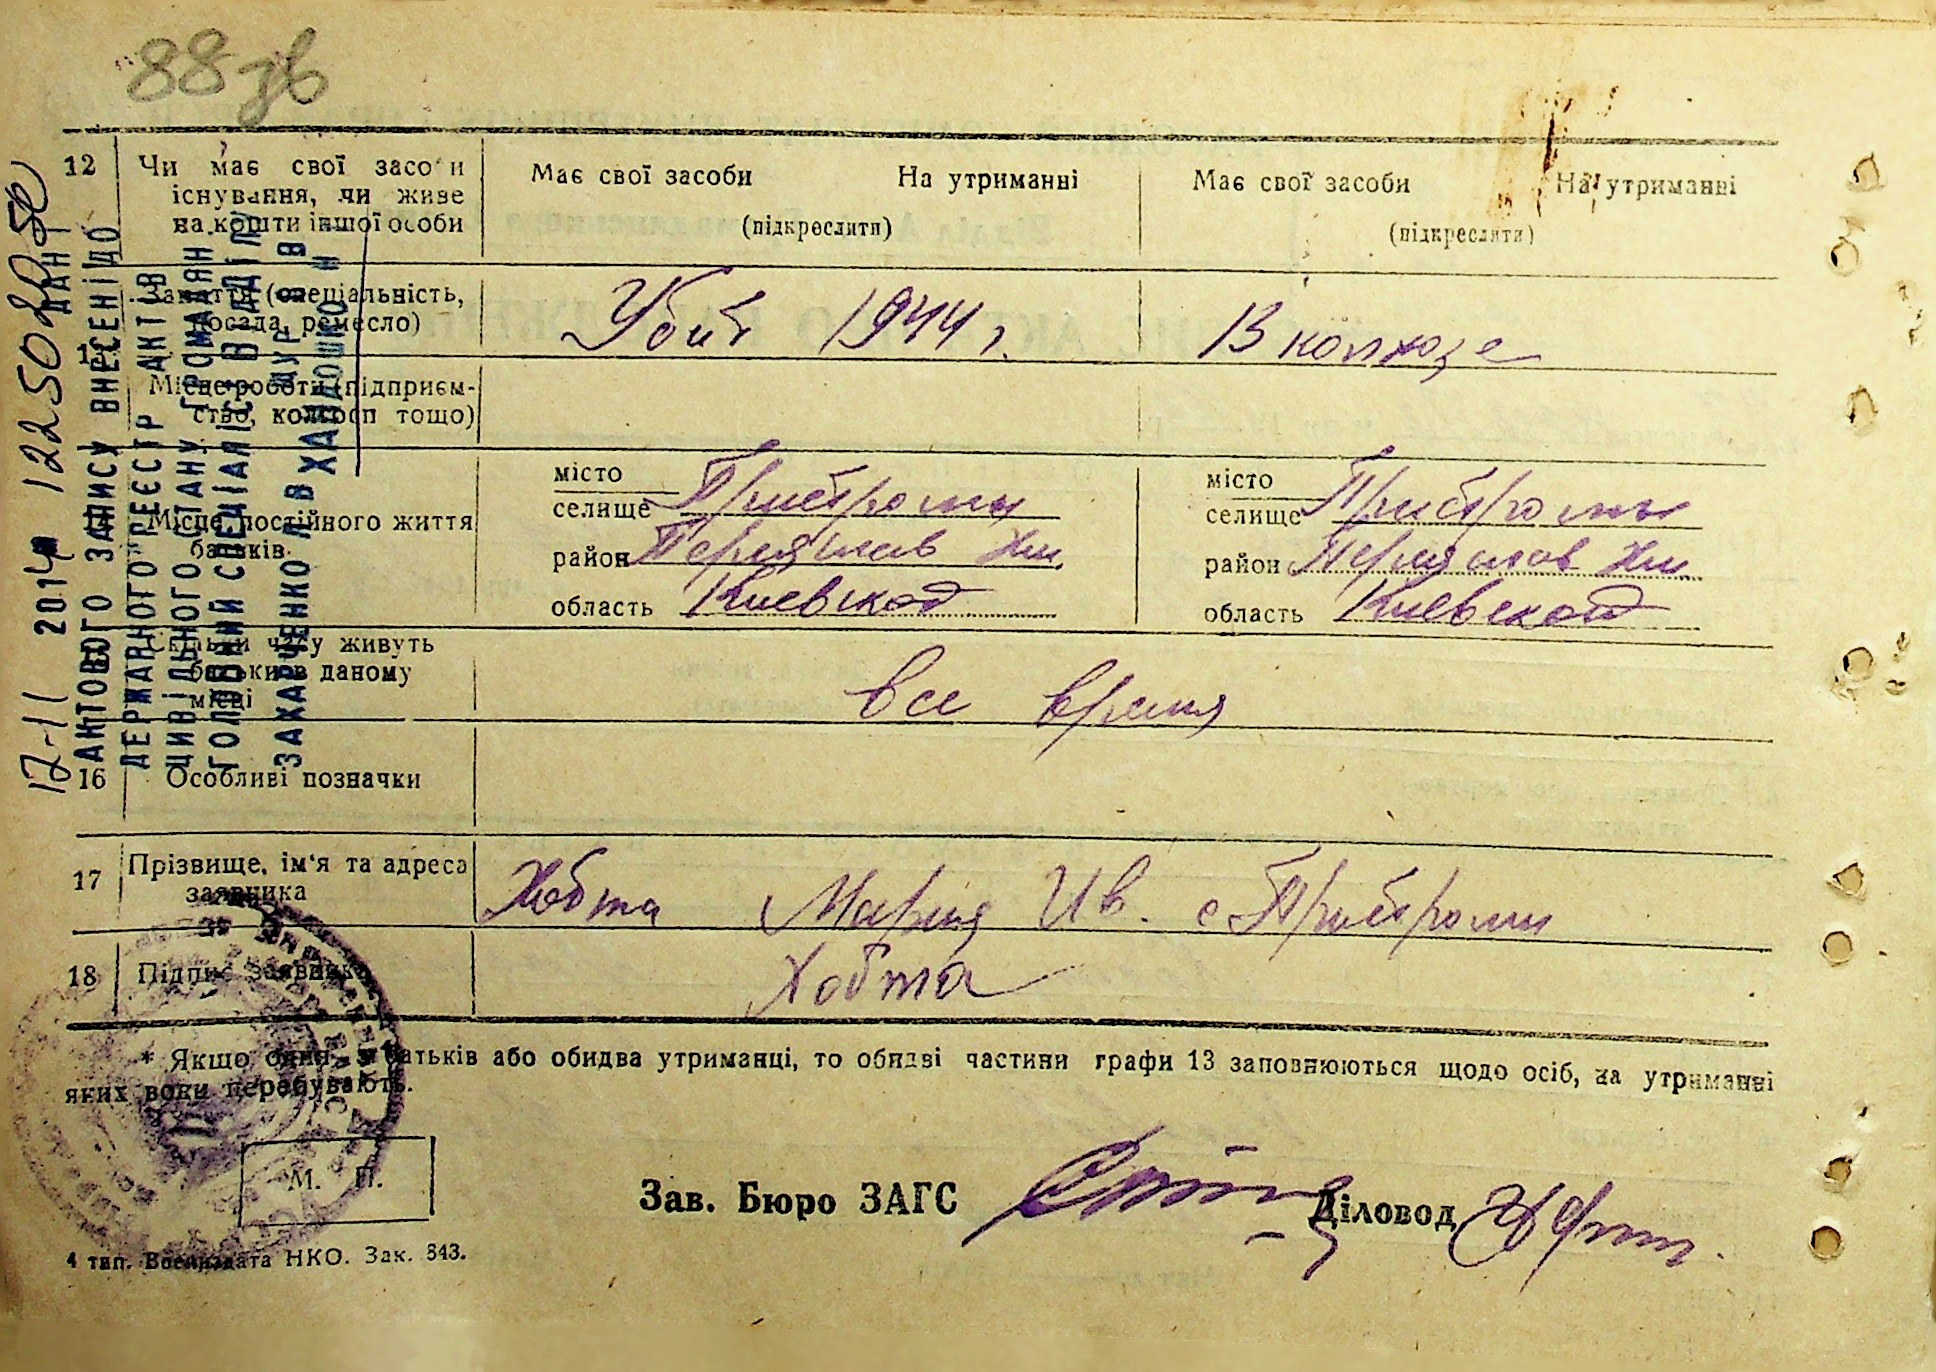 88 зв
12 Чи має свої засоби
існування, чи живе
на кошти іншої особи
Має свої засоби На утриманні
(підкреслити)
Має свої засоби На утриманні
(підкреслити)
Заняття (спеціальність,
посада, ремесло)
Убит 1944 г.
В колхозе
Місце роботи (підприєм-
ство, колгосп тощо)
Місце постійного життя
батьків
місто
селище Пристромы
район Переяслав Хм.
область Киевской
місто
селище Пристромы
район Переяслав Хм.
область Киевской
Скільки часу живуть
батьки в даному
місці
все время
16 Особливі позначки
17 Прізвище, ім'я та адреса
заявника
Хобта Мария Ив. с Пристромы
18 Підпис заявника
Хобта
* Якщо один з батьків або обидва утриманці, то обидві частини графи 13 заповнюються щодо осіб, на утриманні
яких вони перебувають.
М. П.
Зав. Бюро ЗАГС
Діловод
4 тип. Воениздата НКО. Зак. 343.
12-11 2014
ДАНІ
АКТОВОГО ЗАПИСУ ВНЕСЕНІ ДО
ДЕРЖАВНОГО РЕЄСТР АКТІВ
ЦИВІЛЬНОГО СТАНУ ГРОМАДЯН
ГОЛОВНИЙ СПЕЦІАЛІСТ ВІДДІЛУ